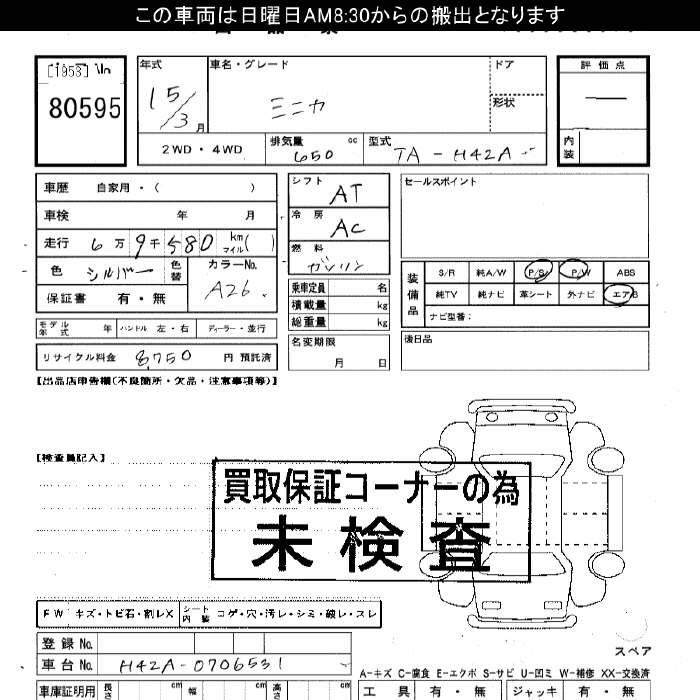 この車両は日曜日AM8:30からの搬出となります
[1953] \In
80595
年式
15/3月
車名・グレード
ミニカ
ドア
形状
評価点
―
内装
2WD・4WD
排気量 650 cc
型式 TA-H42A
車歴 自家用・( )
車検 年 月
走行 6万9千580 km マイル( )
色 シルバー 色替
カラーNo. A26
保証書 有・無
シフト AT
冷房 AC
燃料 ガソリン
乗車定員 名
積載量 kg
総重量 kg
名変期限
月 日
セールスポイント
装備品
S/R 純A/W P/S P/W ABS
純TV 純ナビ 革シート 外ナビ エアB
ナビ型番:
後日品
モデル年式 年 ハンドル 左・右 ディーラー・並行
リサイクル料金 8,750 円 預託済
【出品店申告欄(不良箇所・欠品・注意事項等)】
【検査員記入】
買取保証コーナーの為
未検査
FW キズ・トビ石・割レX シート内装 コゲ・穴・汚レ・シミ・破レ・スレ
登録No.
車台No. H42A-0706531
スペア
A-キズ C-腐食 E-エクボ S-サビ U-凹ミ W-補修 XX-交換済
車庫証明用 長さ cm 幅 cm 高さ cm
工具 有・無 ジャッキ 有・無